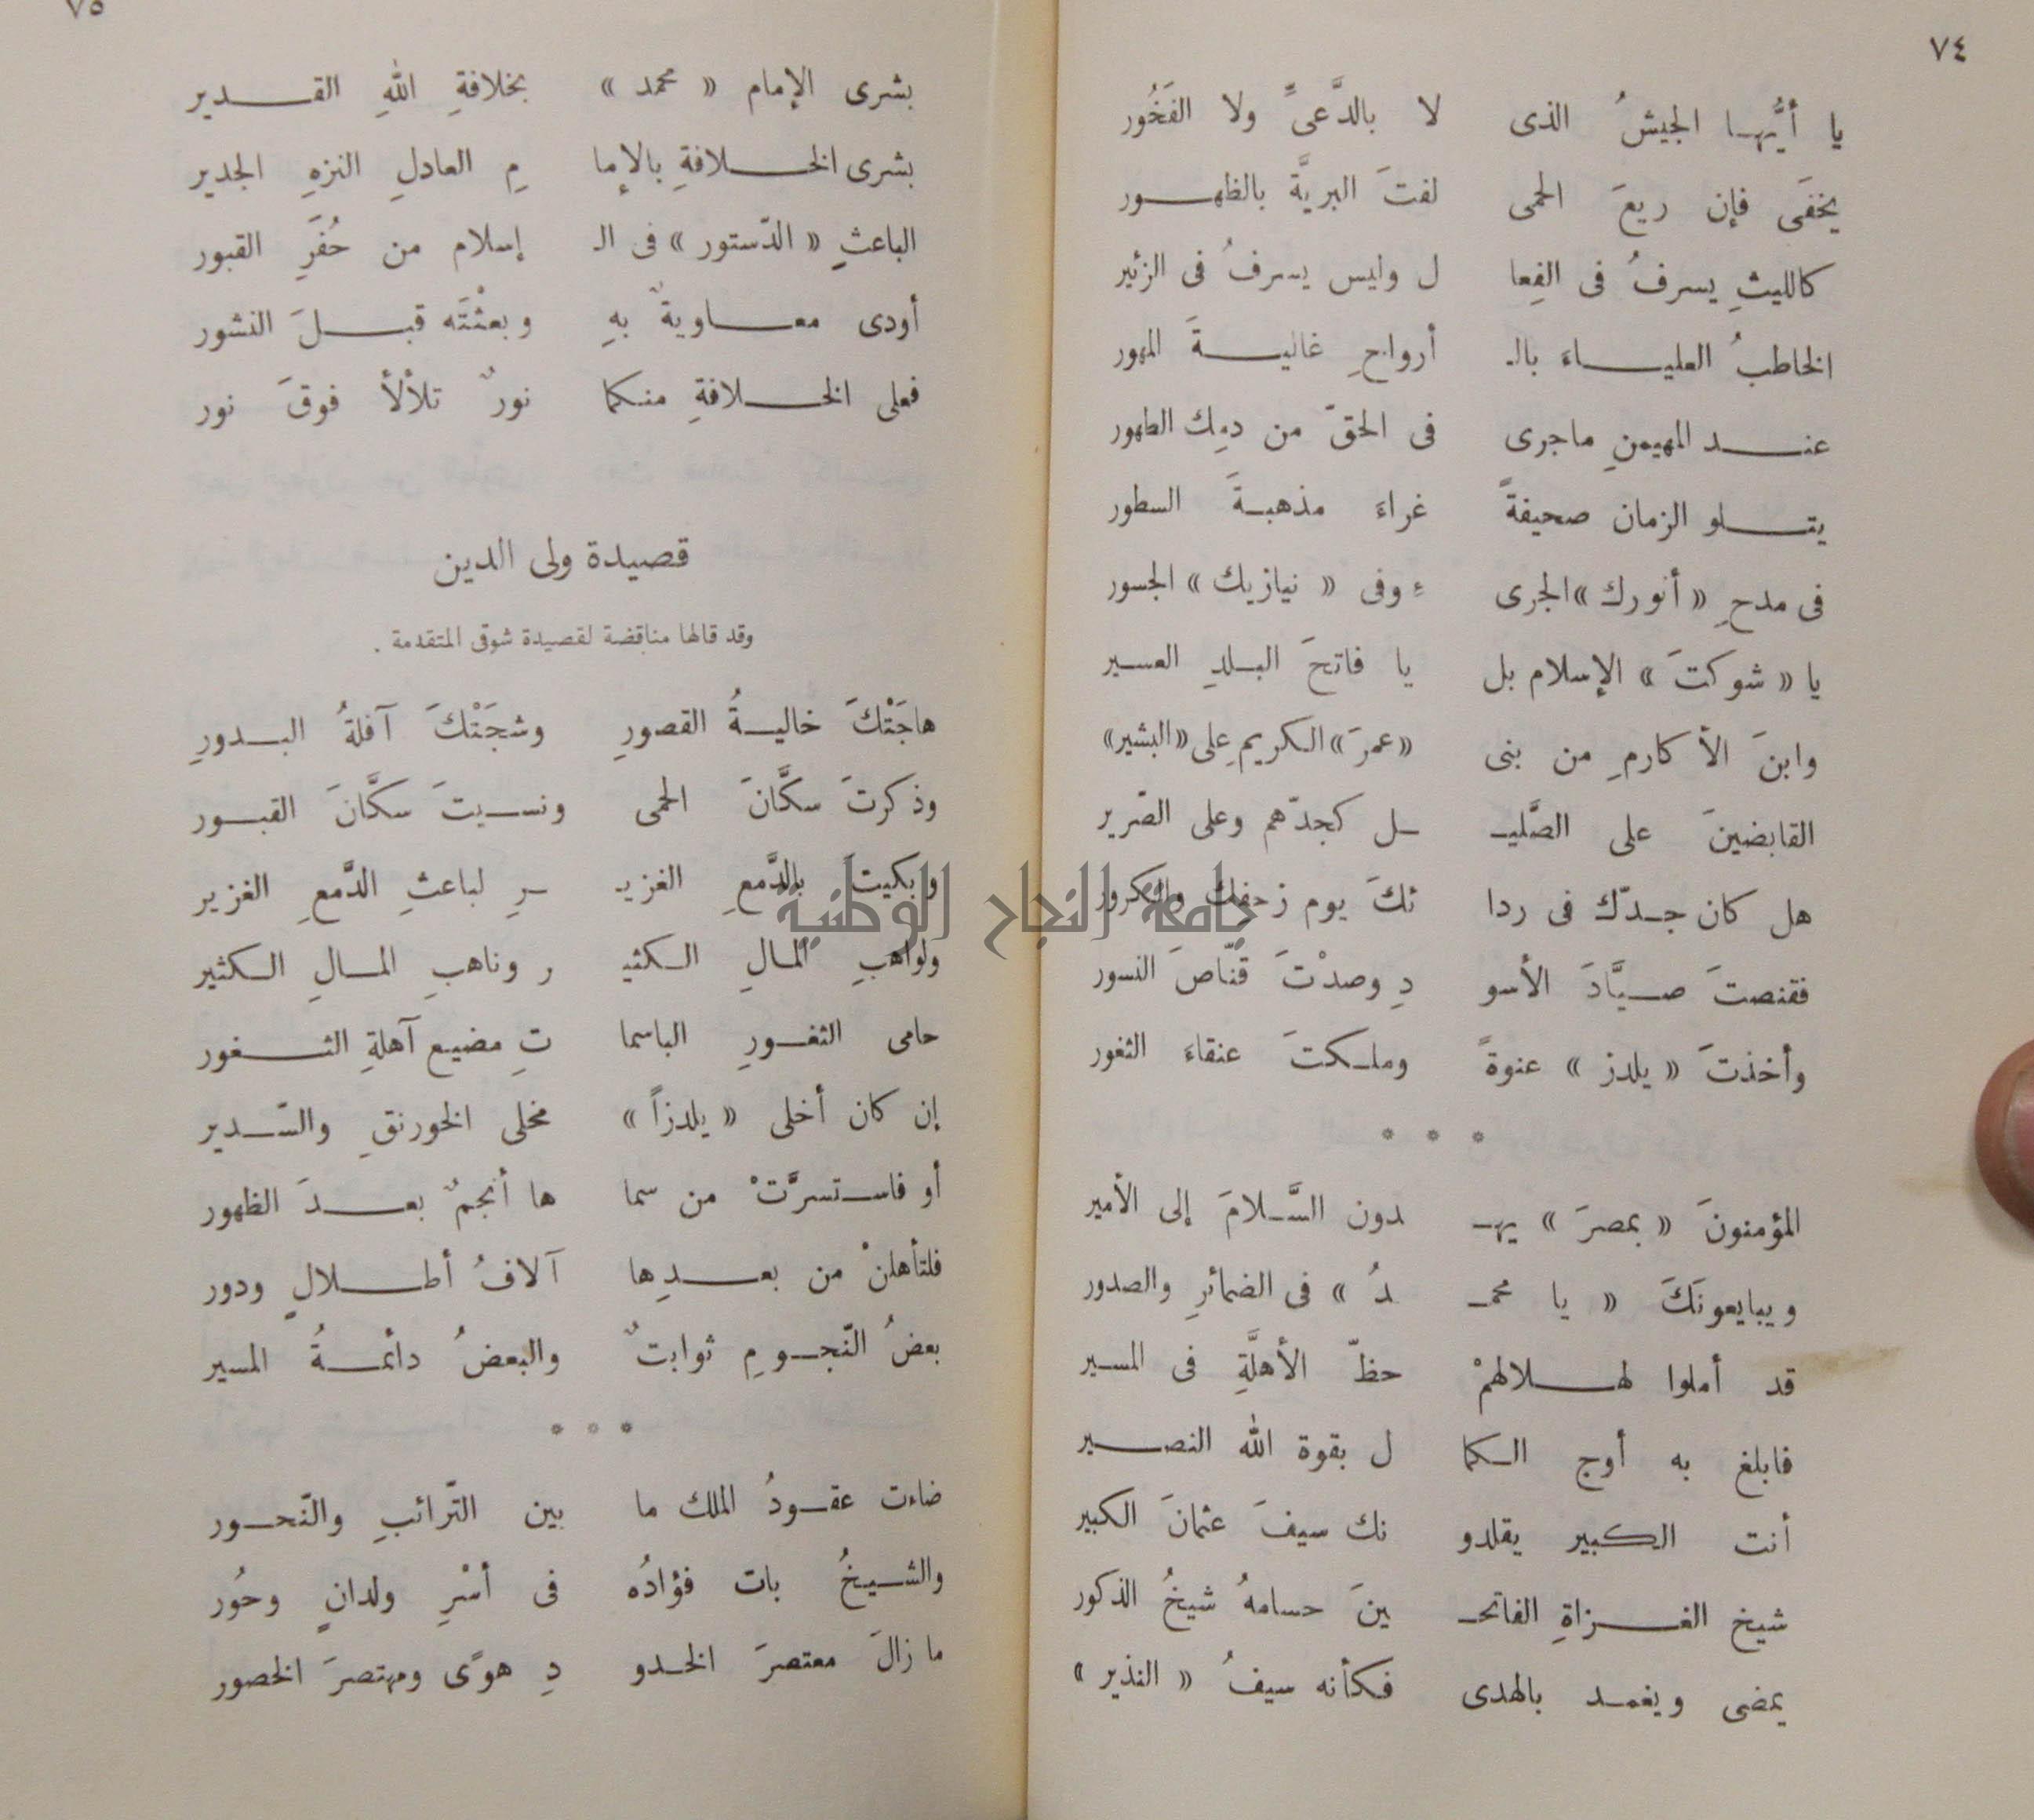 ٧٤
يا أيُّهـا الجيشُ الذى لا بالدَّعىِّ ولا الفَخُور
يخفَى فإن ريعَ الحمى لفتَ البريَّةَ بالظهـور
كالليثِ يسرفُ فى الفِعا ل وليس يسرفُ فى الزئير
الخاطبُ العليـاءَ بالـ أرواحِ غاليـةَ المهور
عنـد المهيمنِ ماجرى فى الحقّ من دمِك الطهور
يتـلو الزمان صحيفةً غراءَ مذهبـةَ السطور
فى مدحِ « أنورك » الجرى ء وفى « نيازيك » الجسور
يا « شوكتَ » الإسلام بل يا فاتحَ البـلدِ العسير
وابنَ الأكارمِ من بنى « عمرَ » الكريمِ على « البشير »
القابضينَ على الصَّليـ ـل كجدّهم وعلى الصّرير
هل كان جـدّك فى ردا ئكَ يوم زحفِك والكرور
فقنصتَ صـيَّادَ الأسو دِ وصدْتَ قنّاصَ النسور
وأخذتَ « يلدز » عنوةً وملـكتَ عنقاءَ الثغور
* * *
المؤمنونَ « بمصرَ » يهـ ـدون السَّـلامَ إلى الأمير
ويبايعونَكَ « يا محمـ ـدُ » فى الضمائرِ والصدور
قد أملوا لهـلالهمْ حظّ الأهلَّةِ فى المسير
فابلغ به أوج الـكما ل بقوة الله النصـير
أنت الكبير يقلدو نك سيفَ عثمانَ الكبير
شيخ الغـزاةِ الفاتحـ ـينَ حسامهُ شيخُ الذكور
يمضى ويغمـد بالهدى فـكأنه سيفُ « النذير »
٧٥
بشرى الإمام « محمد » بخلافةِ اللهِ القـدير
بشرى الخـلافةِ بالإما مِ العادلِ النزهِ الجدير
الباعثِ « الدّستور » فى الـ إسلام من حُفَرِ القبور
أودى معـاويةٌ بهِ وبعثْتَه قبـلَ النشور
فعلى الخـلافةِ منـكما نورٌ تلألأ فوقَ نور
قصيدة ولى الدين
وقد قالها مناقضة لقصيدة شوقى المتقدمة .
هاجَتْكَ خاليـةُ القصورِ وشجَتْكَ آفلةُ البـدورِ
وذكرتَ سكَّانَ الحمى ونسـيتَ سكَّانَ القبـور
وبكيتَ بالدَّمعِ الغزيـ ـرِ لباعثِ الدَّمعِ الغزير
ولواهبِ المـالِ الـكثيـ ر وناهبِ المـالِ الـكثير
حامى الثغـورِ الباسما تِ مضيع آهلةِ الثـغور
إن كان أخلى « يلدزاً » مخلى الخورنقِ والسّـدير
أو فاسـتسرَّتْ من سما ها أنجمٌ بعـدَ الظهور
فلتأهلنْ من بعـدِها آلافُ أطـلالٍ ودور
بعضُ النّجـومِ ثوابتٌ والبعضُ دائمـةُ المسير
* * *
ضاءت عقـودُ الملك ما بين التّرائبِ والنّحـور
والشـيخُ بات فؤادُه فى أسْرِ ولدانٍ وحُور
ما زالَ معتصرَ الخـدو دِ هوًى ومهتصرَ الخصور
جامعة النجاح الوطنية